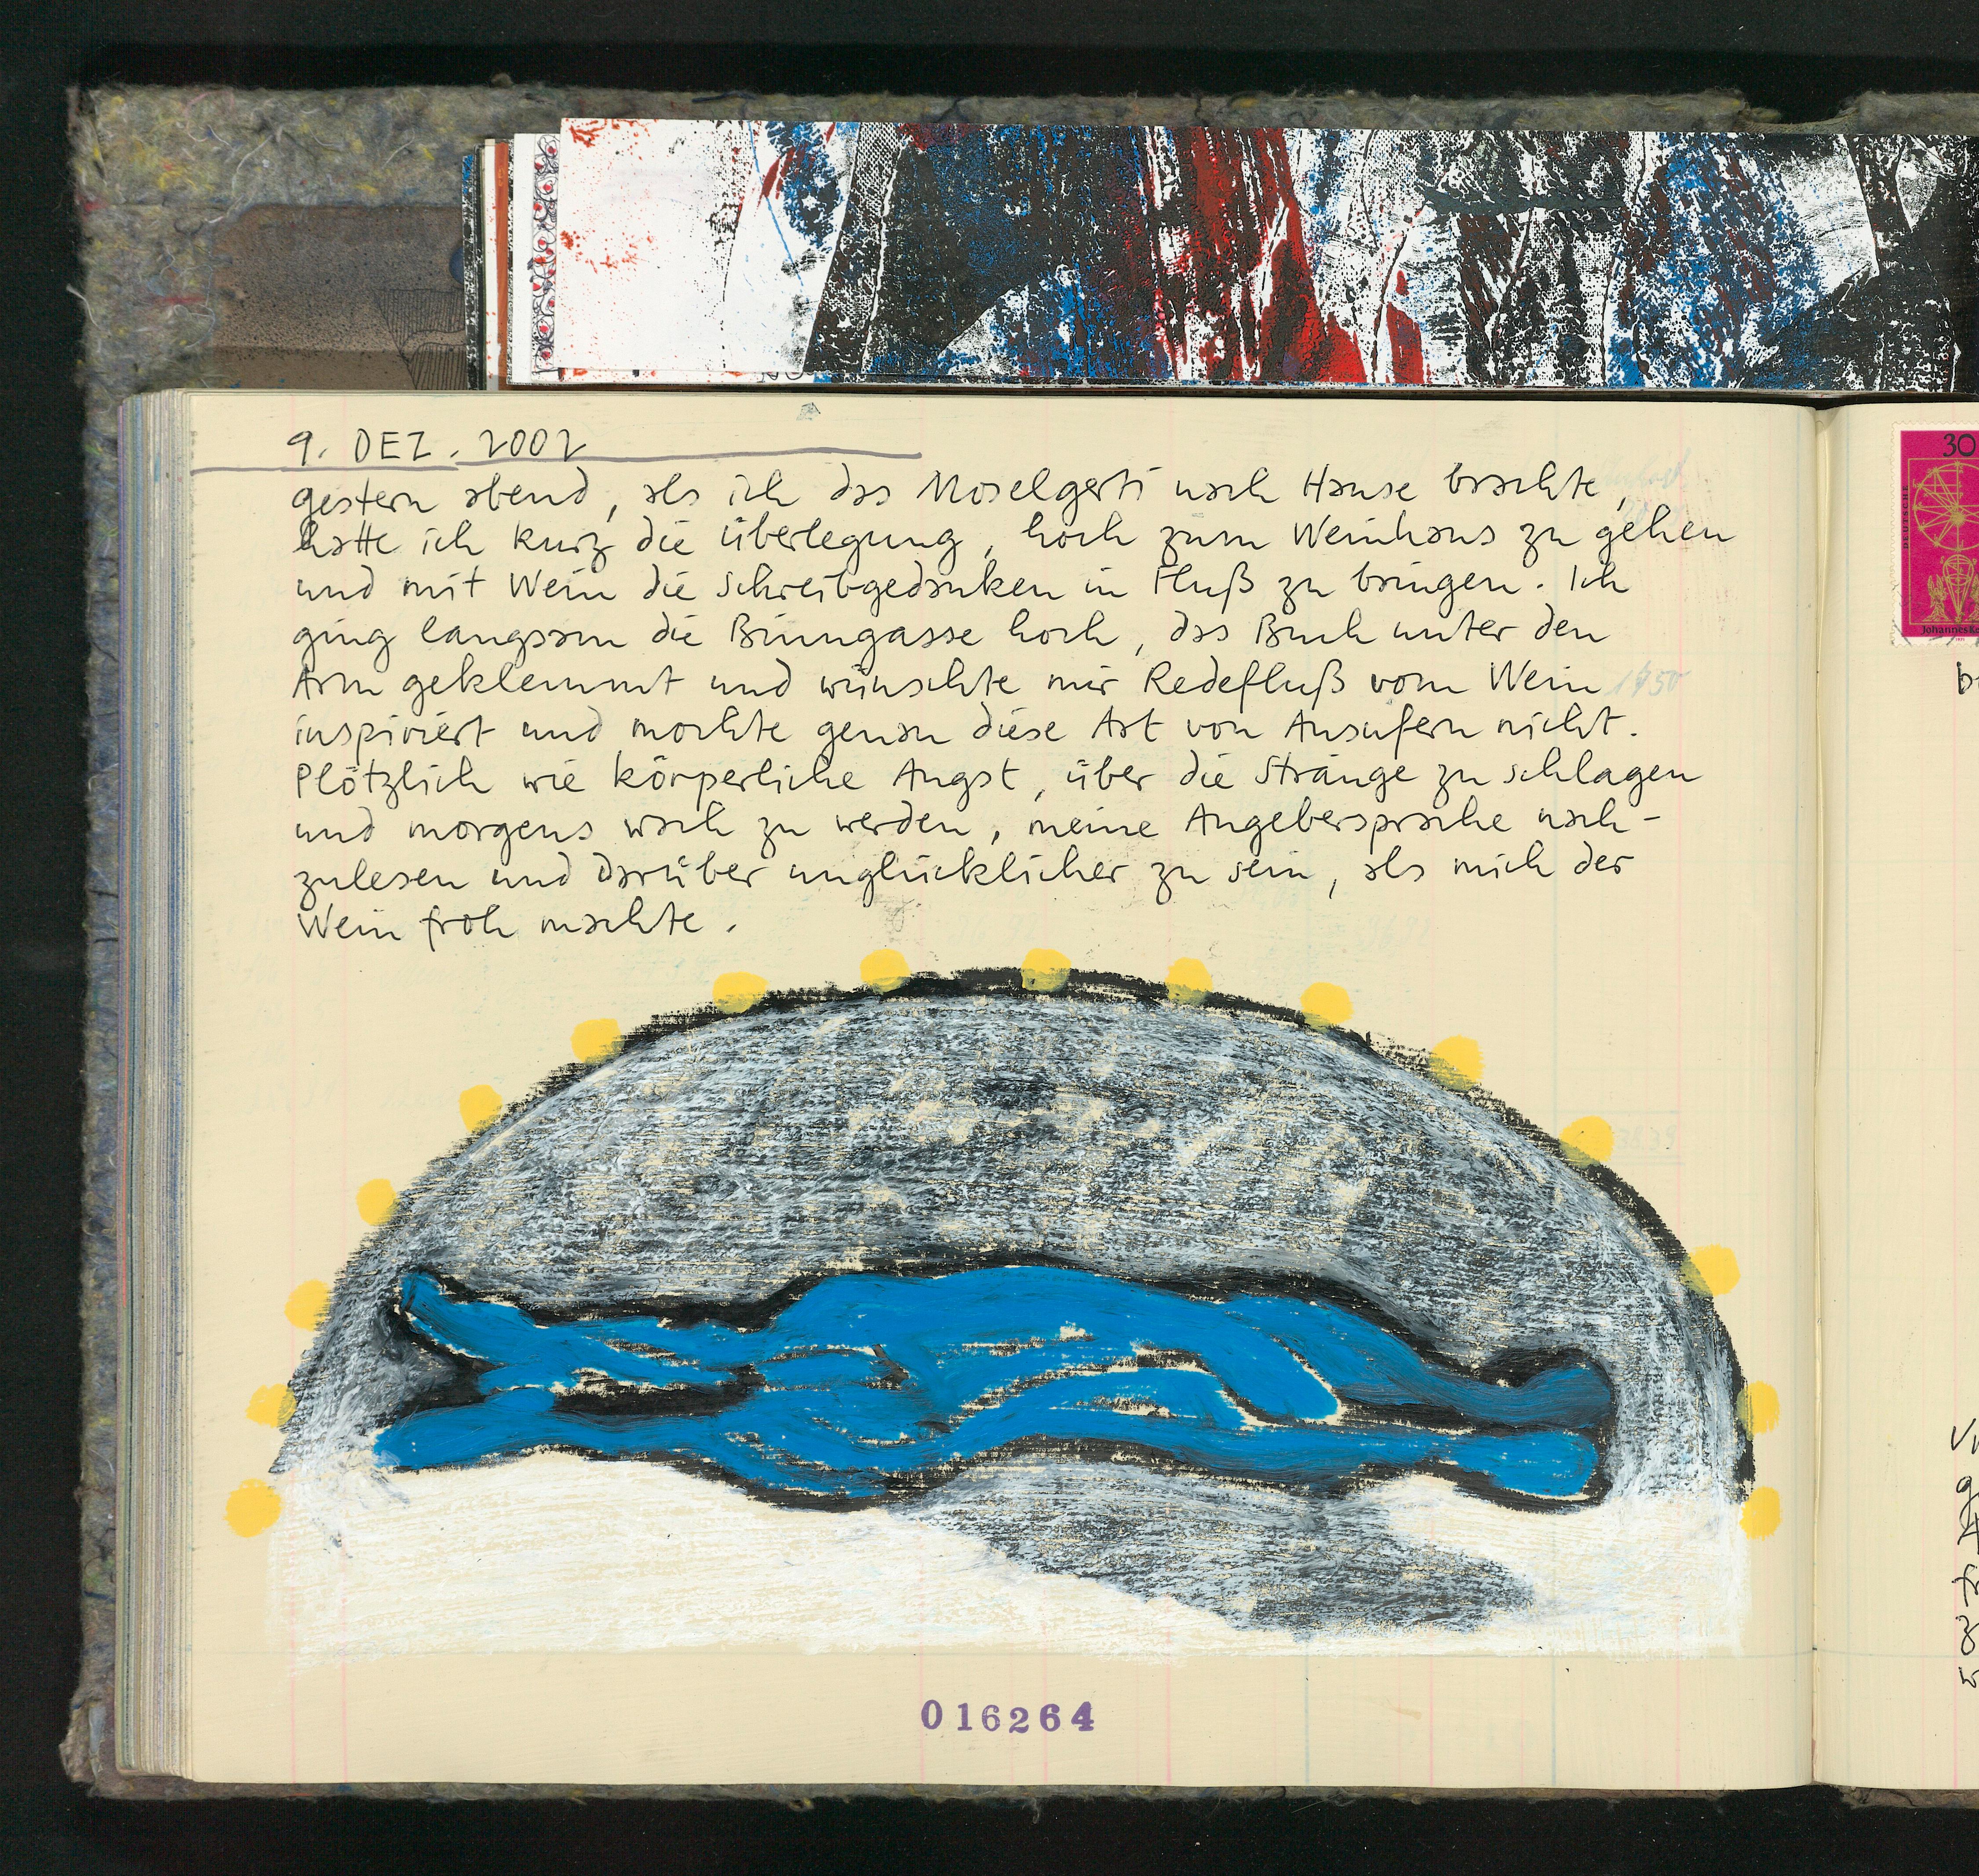 9. DEZ. 2002
gestern abend, als ich das Moselgerti nach Hause brachte,
hatte ich kurz die Überlegung, hoch zum Weinhaus zu gehen
und mit Wein die Schreibgedanken in Fluß zu bringen. Ich
ging langsam die Brunngasse hoch, das Buch unter den
Arm geklemmt und wünschte mir Redefluß vom Wein
inspiriert und mochte genau diese Art von Ausufern nicht.
Plötzlich wie körperliche Angst, über die Stränge zu schlagen
und morgens wach zu werden, meine Angebersprache nach-
zulesen und darüber unglücklicher zu sein, als mich der
Wein froh machte.
016264
30
DEUTSCHE